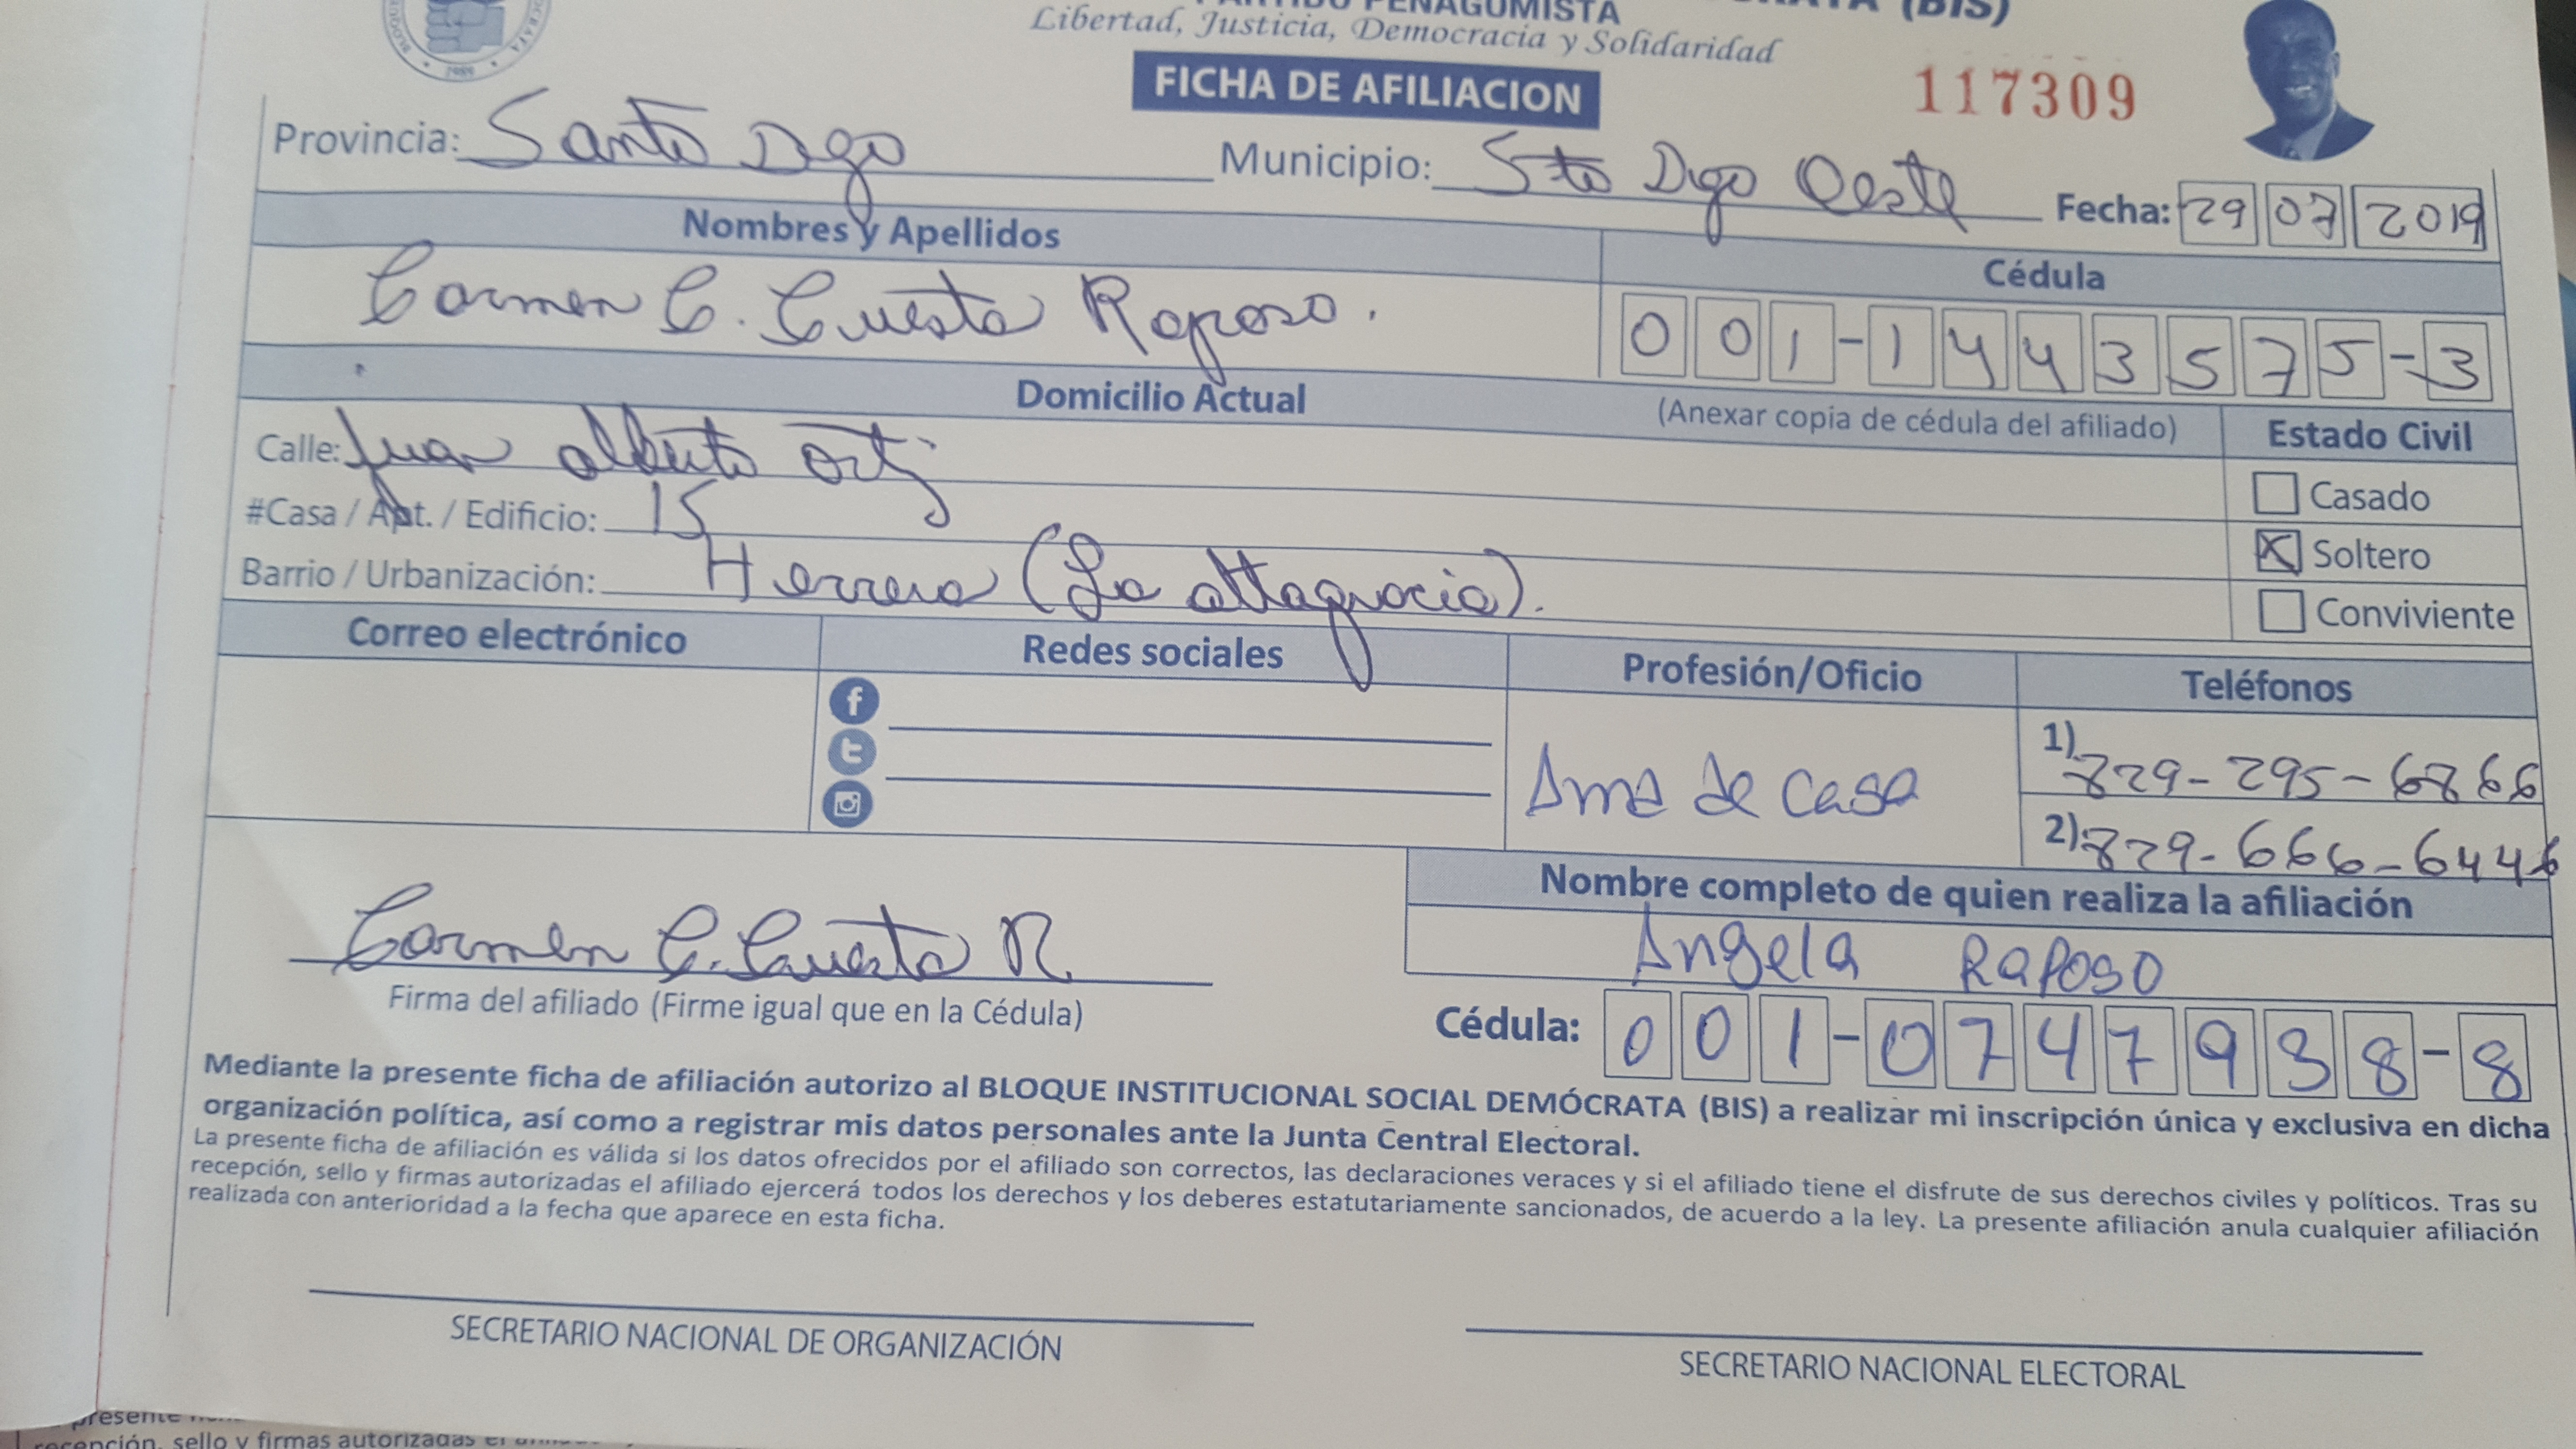 PARTIDO PEÑAGOMISTA (BIS)
Libertad, Justicia, Democracia y Solidaridad
FICHA DE AFILIACION
117309
1989
Provincia: Santo Dgo Municipio: Sto Dgo Oeste Fecha: 29 07 2019
Nombres y Apellidos Cédula
Carmen C. Cuesta Raposo. 001-1443575-3
Domicilio Actual (Anexar copia de cédula del afiliado) Estado Civil
Calle: Juan alberto Ortiz
Casado
#Casa / Apt. / Edificio: 15
Soltero
Barrio / Urbanización: Herrera (La altagracia).
Conviviente
Correo electrónico Redes sociales Profesión/Oficio Teléfonos
Ama de casa
1) 829-295-6866
2) 829-666-6446
Nombre completo de quien realiza la afiliación
Angela Raposo
Carmen C. Cuesta R.
Firma del afiliado (Firme igual que en la Cédula)
Cédula: 001-0747938-8
Mediante la presente ficha de afiliación autorizo al BLOQUE INSTITUCIONAL SOCIAL DEMÓCRATA (BIS) a realizar mi inscripción única y exclusiva en dicha
organización política, así como a registrar mis datos personales ante la Junta Central Electoral.
La presente ficha de afiliación es válida si los datos ofrecidos por el afiliado son correctos, las declaraciones veraces y si el afiliado tiene el disfrute de sus derechos civiles y políticos. Tras su
recepción, sello y firmas autorizadas el afiliado ejercerá todos los derechos y los deberes estatutariamente sancionados, de acuerdo a la ley. La presente afiliación anula cualquier afiliación
realizada con anterioridad a la fecha que aparece en esta ficha.
SECRETARIO NACIONAL DE ORGANIZACIÓN
SECRETARIO NACIONAL ELECTORAL
presente
recepción, sello y firmas autorizadas el